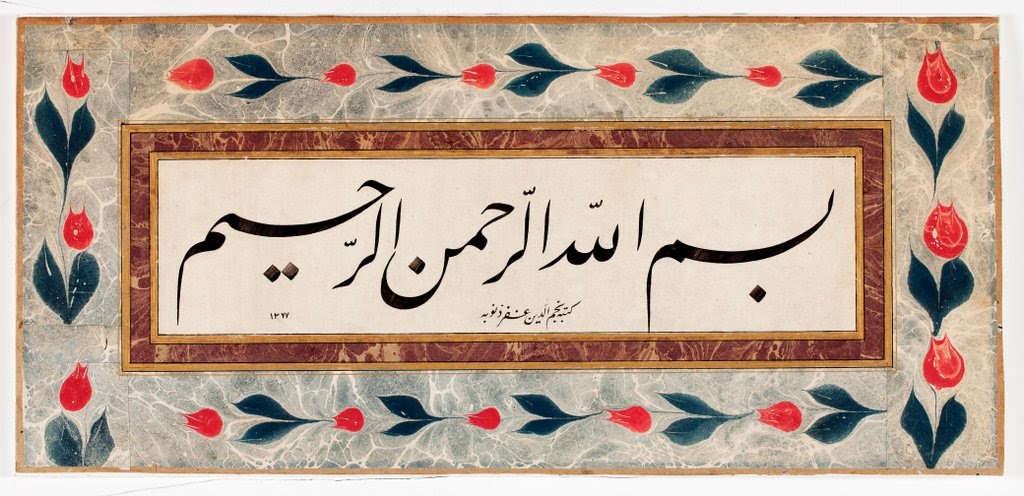 بسم الله الرّحمن الرّحيم
كتبه نجم الدين غفر ذنوبه
١٣٧٧